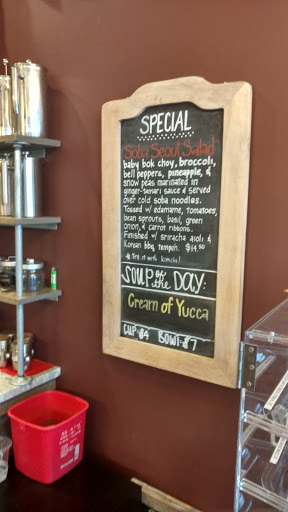 SPECIAL
Soba Seoul Salad
baby bok choy, broccoli,
bell peppers, pineapple, &
snow peas marinated in
ginger-tamari sauce & served
over cold soba noodles.
Tossed w/ edamame, tomatoes,
bean sprouts, basil, green
onion, & carrot ribbons.
Finished w/ sriracha aioli &
Korean bbq tempeh. $14.50
kimchi!
SOUP OF THE DAY:
Cream of Yucca
CUP-$4 BOWL-$7